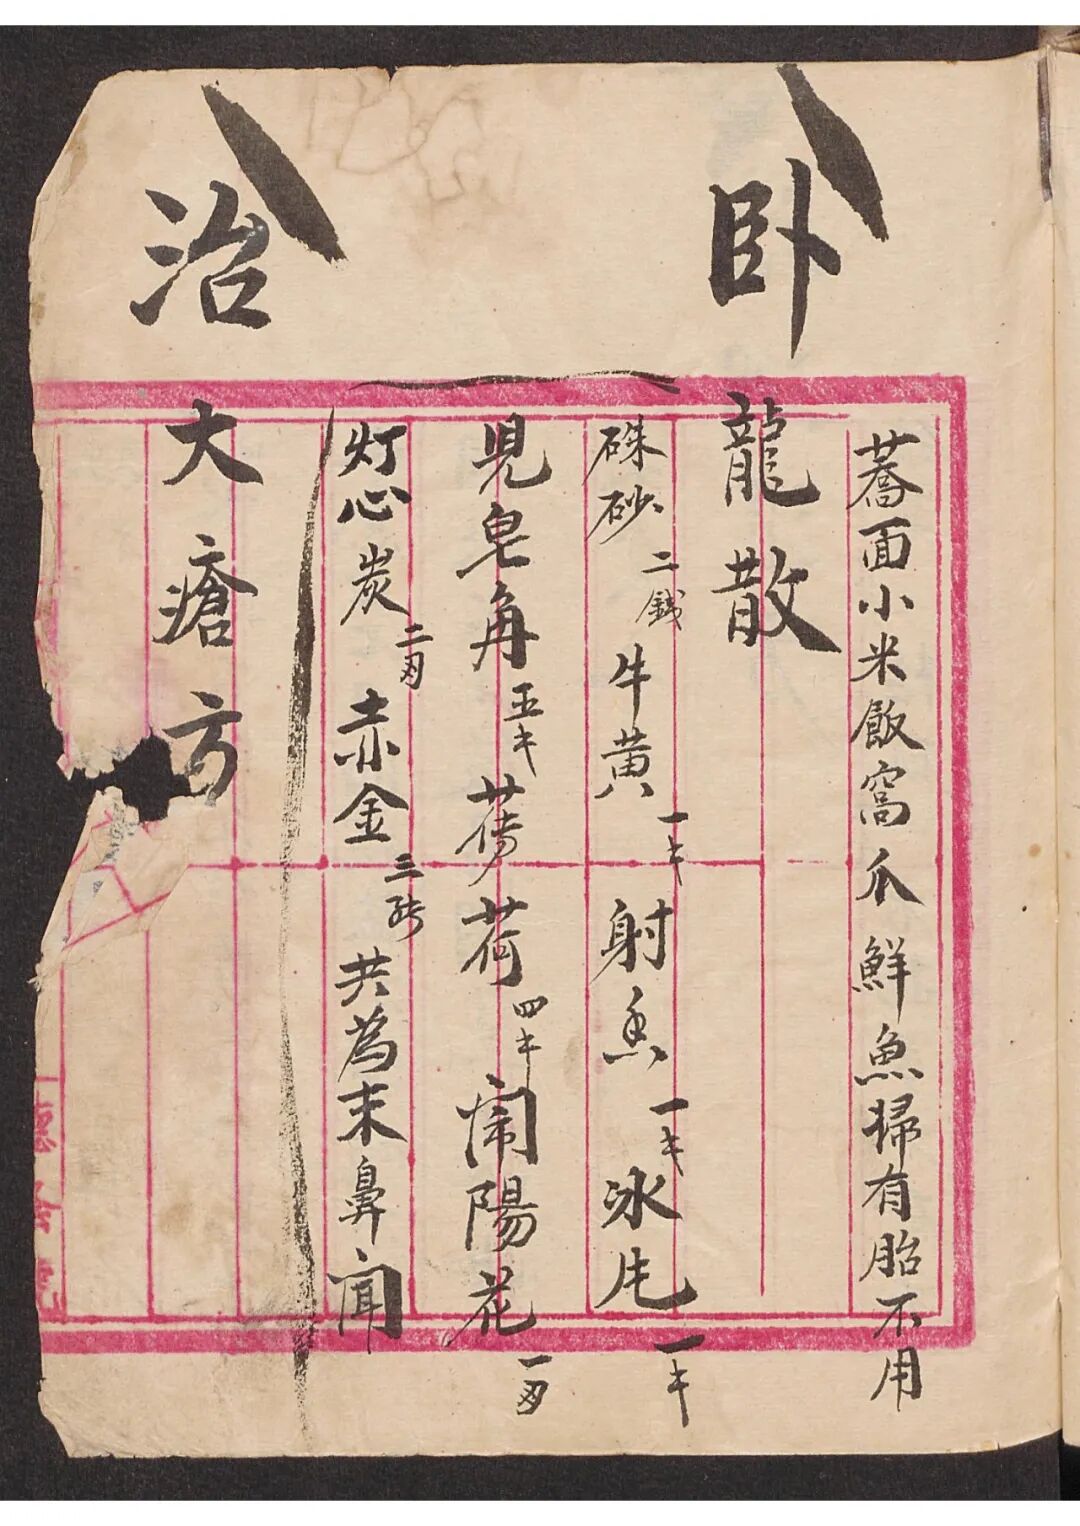 蕎面小米飯窩爪鮮魚掃有胎不用
卧龍散
硃砂二錢牛黄一キ射香一キ冰片一キ
見皂角五キ荷四キ鬧陽花一匁
灯心炭二匁赤金三张共為末鼻聞
治大瘡方